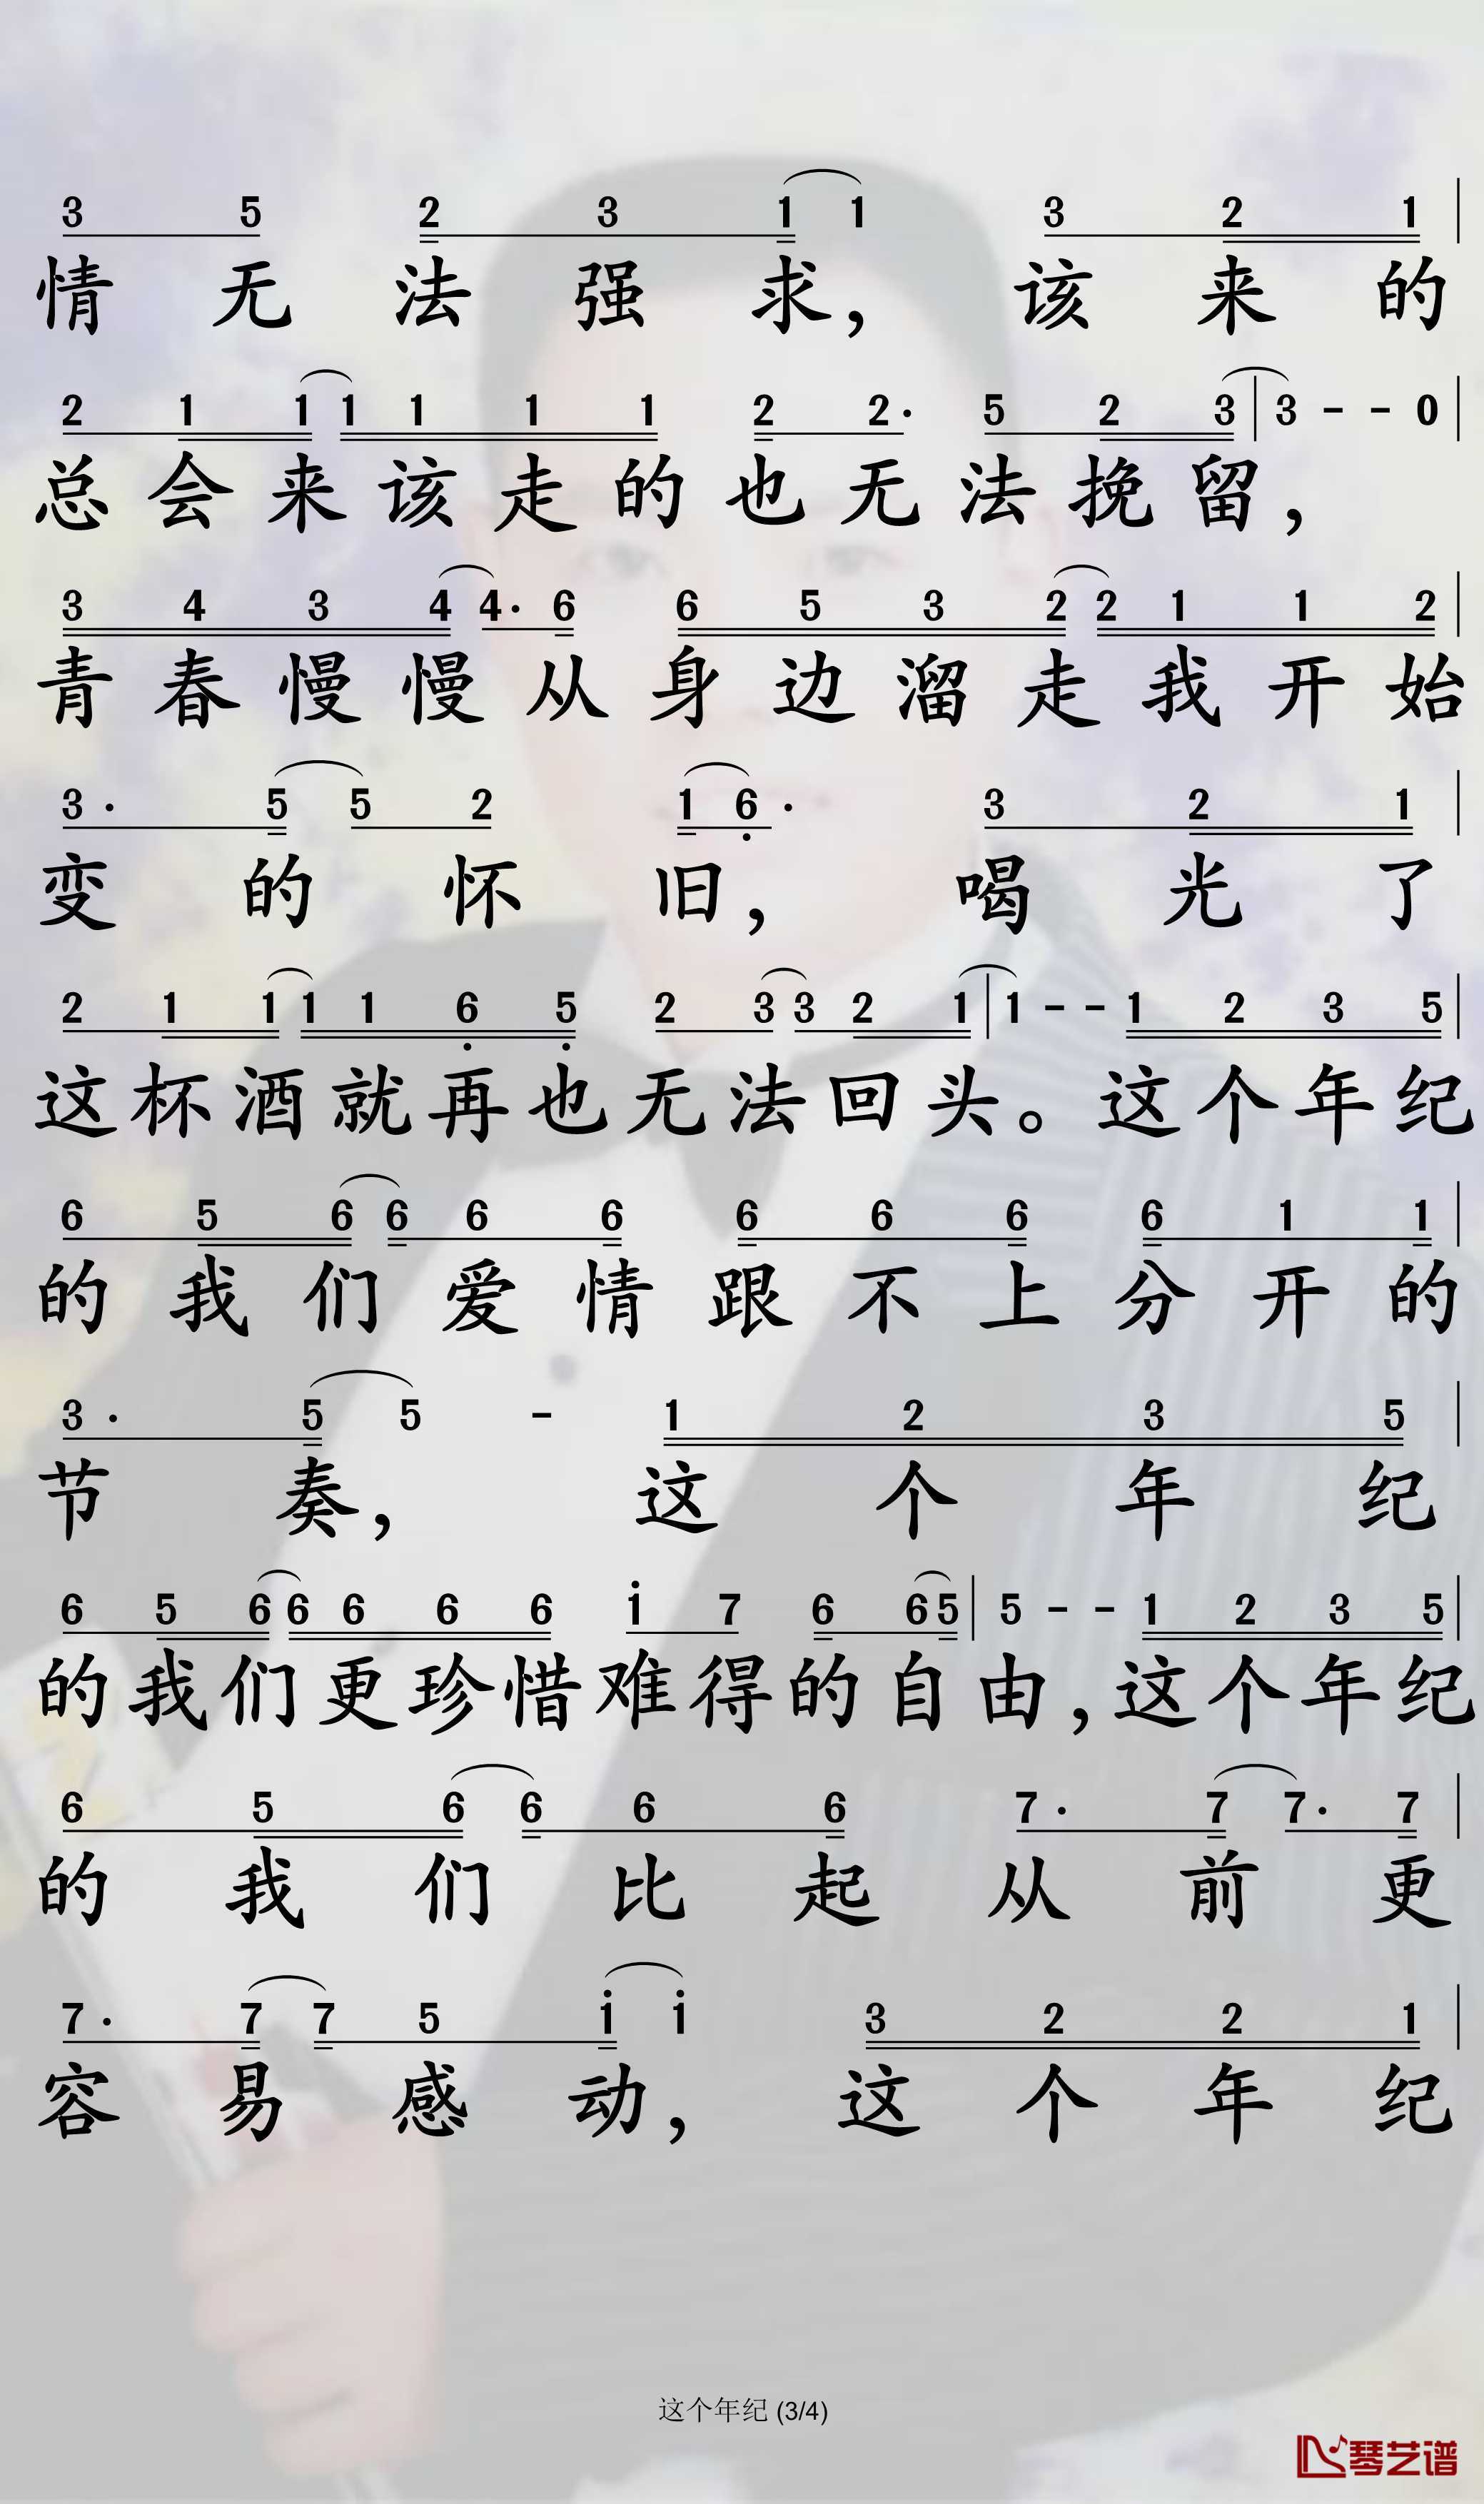 3 5 2 3 1 1 3 2 1
情无法强求，该来的
2 1 1 1 1 1 1 2 2· 5 2 3 | 3 - - 0
总会来该走的也无法挽留，
3 4 3 4 4· 6 6 5 3 2 2 1 1 2
青春慢慢从身边溜走我开始
3· 5 5 2 1 6· 3 2 1
变的怀旧，喝光了
2 1 1 1 1 6 5 2 3 3 2 1 | 1 - - 1 2 3 5
这杯酒就再也无法回头。这个年纪
6 5 6 6 6 6 6 6 6 6 1 1
的我们爱情跟不上分开的
3· 5 5 - 1 2 3 5
节奏，这个年纪
6 5 6 6 6 6 6 1 7 6 6 5 | 5 - - 1 2 3 5
的我们更珍惜难得的自由，这个年纪
6 5 6 6 6 6 7· 7 7· 7
的我们比起从前更
7· 7 7 5 1 1 3 2 2 1
容易感动，这个年纪
这个年纪 (3/4)
琴艺谱